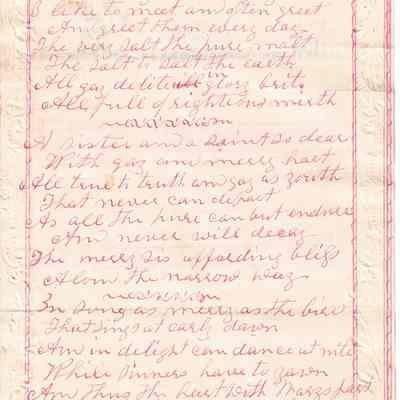 I like to meet am often greet
Am greet them every day
The very salt the pure malt
The salt to salt the earth
All gay delite in glory brite
All full of rightious mirth
A sister and a saint so dear
With gay am merry hart
All true to truth am gay as youth
That never can depart
As all the pure can but endure
Am never will decay
The merry is affording bliss
Alom the narrow way
In song as merry as the bird
That sings at early dawn
Am in delight can dance at nite
While sinners have to yawn
Am thus the heart with Marys part